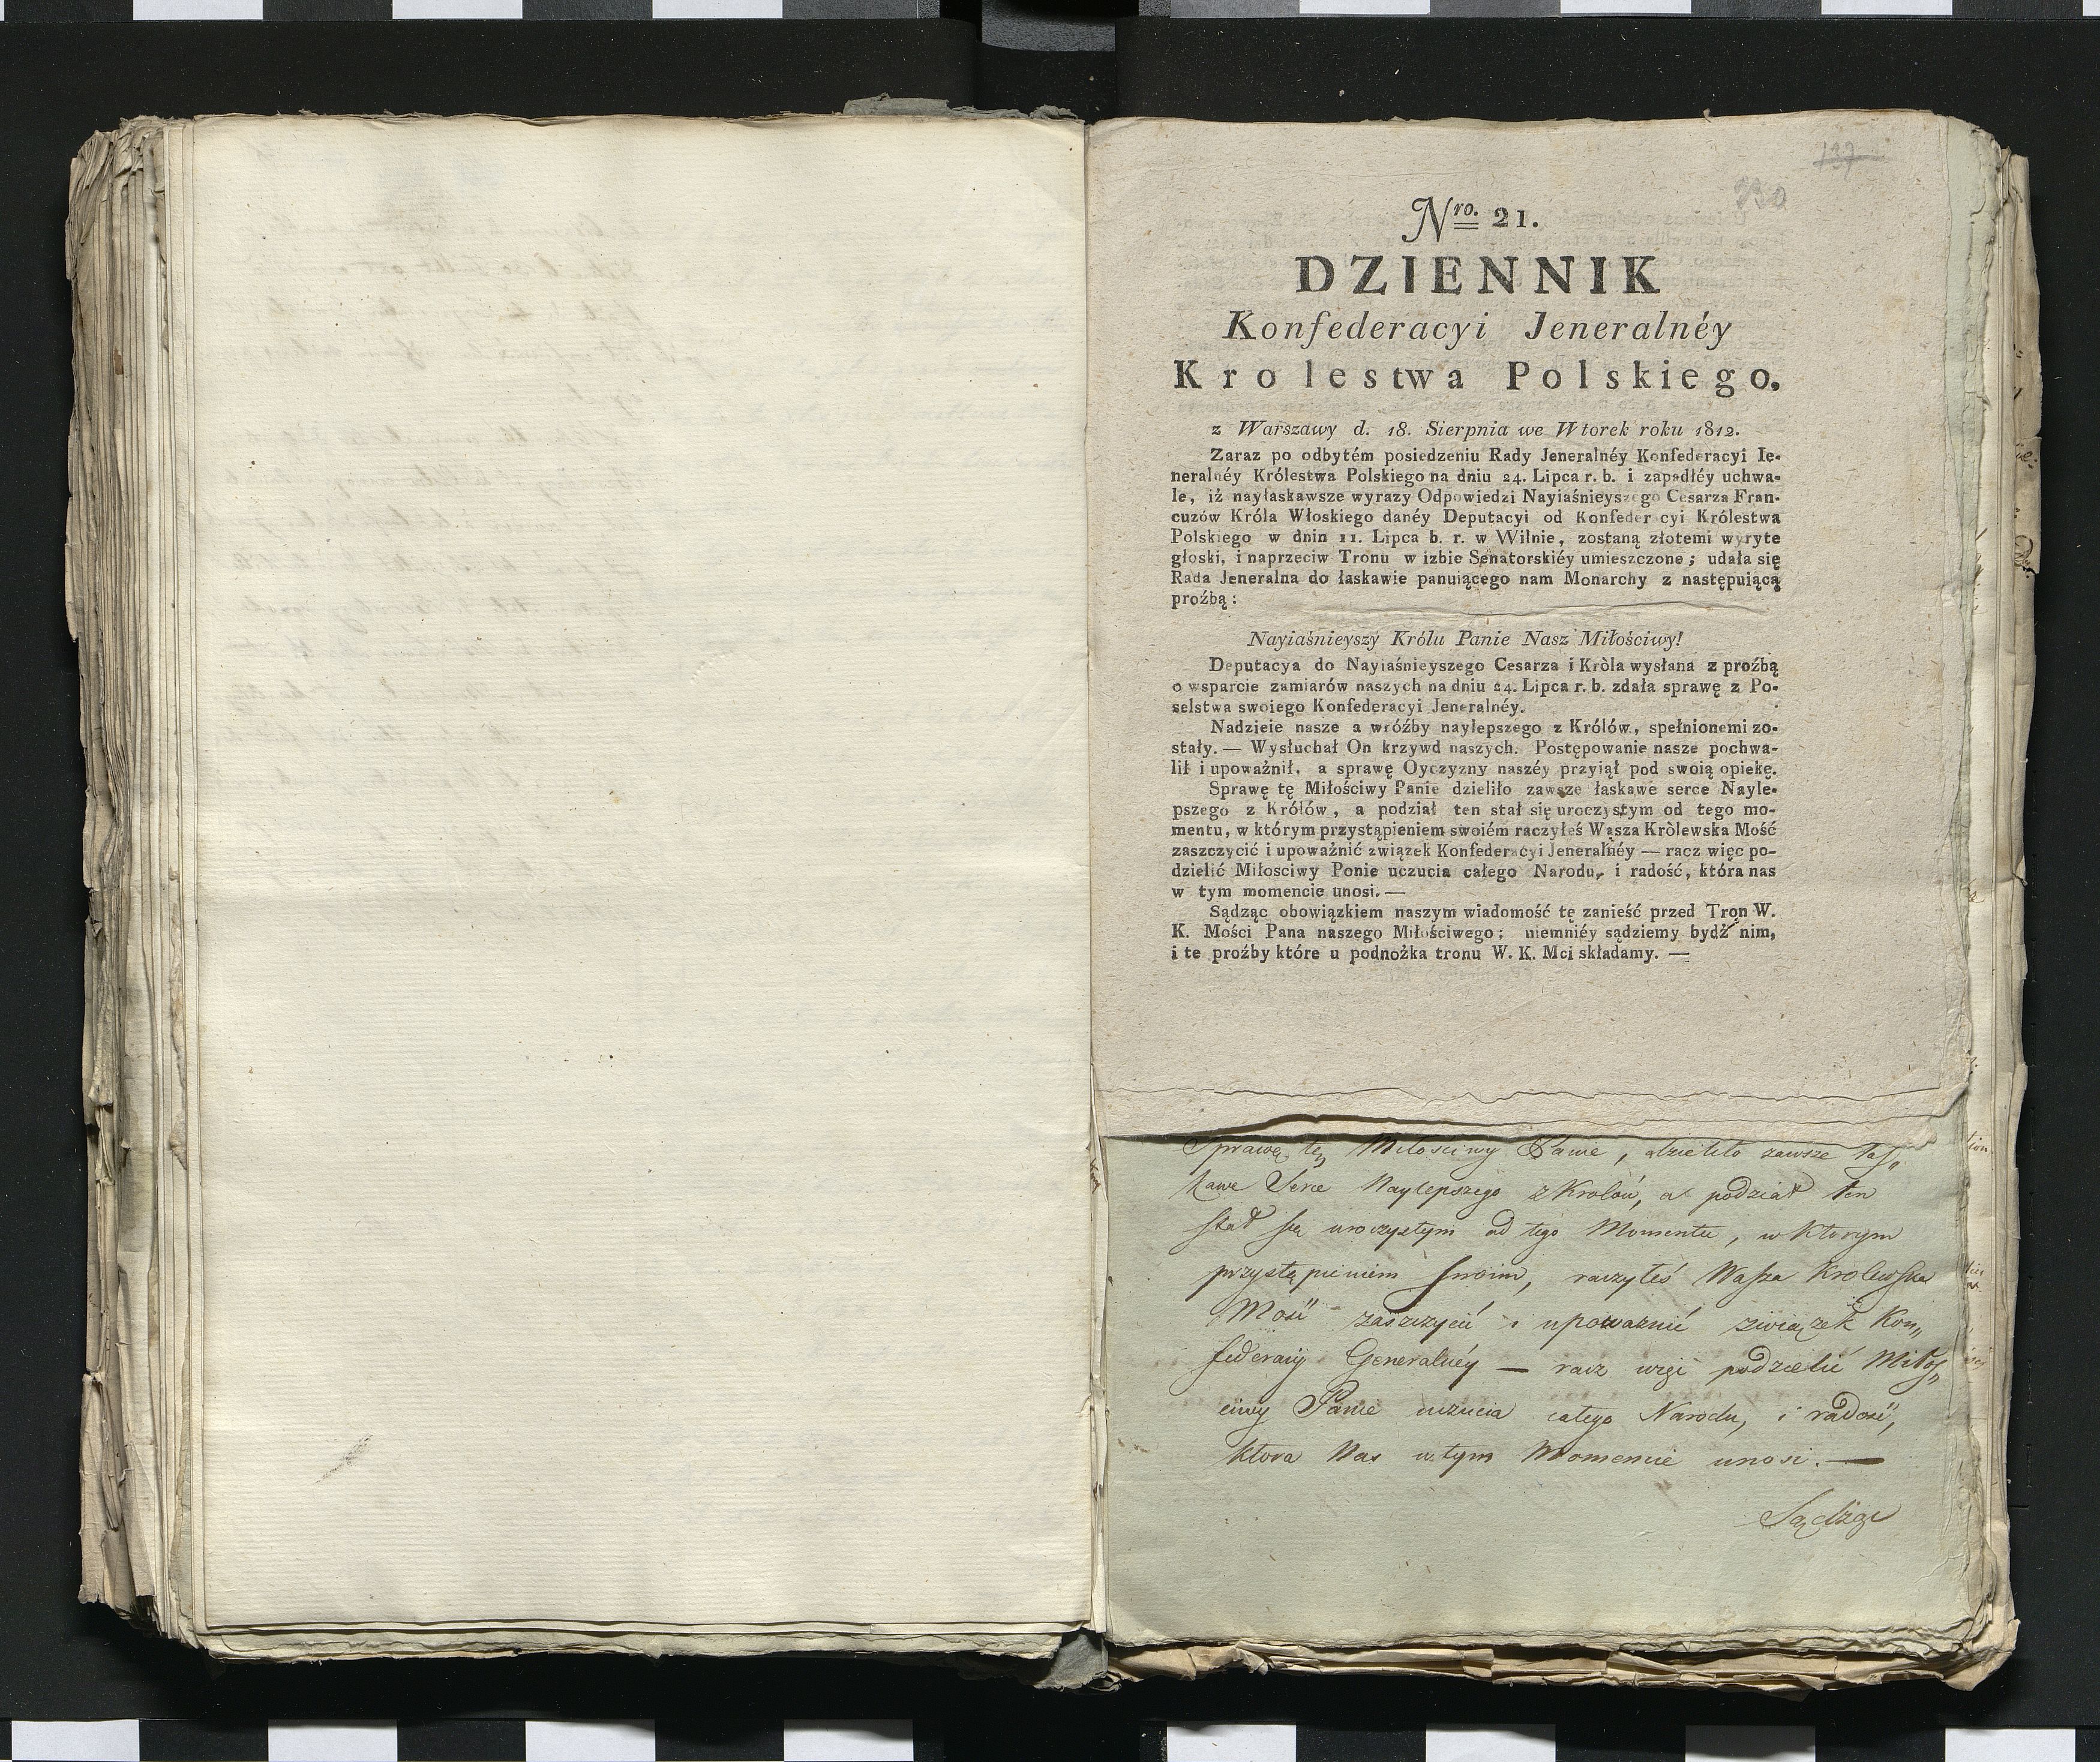 137
Nro. 21.
DZIENNIK
Konfederacyi Jeneralnéy
Krolestwa Polskiego.
z Warszawy d. 18. Sierpnia we Wtorek roku 1812.
Zaraz po odbytém posiedzeniu Rady Jeneralnéy Konfederacyi Ie-
neralnéy Królestwa Polskiego na dniu 24. Lipca r. b. i zapadłéy uchwa-
le, iż nayłaskawsze wyrazy Odpowiedzi Nayiaśnieyszego Cesarza Fran-
cuzów Króla Włoskiego danéy Deputacyi od Konfeder cyi Królestwa
Polskiego w dnin 11. Lipca b. r. w Wilnie, zostaną złotemi wyryte
głoski, i naprzeciw Tronu w izbie Senatorskiéy umieszczone; udała się
Rada Jeneralna do łaskawie panuiącego nam Monarchy z następuiącą
proźbą:
Nayiaśnieyszy Królu Panie Nasz Miłościwy!
Deputacya do Nayiaśnieyszego Cesarza i Kròla wysłana z proźbą
o wsparcie zamiarów naszych na dniu 24. Lipca r. b. zdała sprawę z Po-
selstwa swoiego Konfederacyi Jeneralnéy.
Nadzieie nasze a wróźby naylepszego z Królów, spełnionemi zo-
stały. — Wysłuchał On krzywd naszych. Postępowanie nasze pochwa-
lił i upoważnił, a sprawę Oyczyzny naszéy przyiął pod swoią opiekę.
Sprawę tę Miłościwy Panie dzieliło zawsze łaskawe serce Nayle-
pszego z Królów, a podział ten stał się uroczystym od tego mo-
mentu, w którym przystąpieniem swoiém raczyłeś Wasza Kròlewska Mość
zaszczycić i upoważnić związek Konfederacyi Jeneralnéy — racz więc po-
dzielić Miłosciwy Ponie uczucia całego Narodu, i radość, która nas
w tym momencie unosi. —
Sądząc obowiązkiem naszym wiadomość tę zanieść przed Tron W.
K. Mości Pana naszego Miłościwego; niemniéy sądziemy bydź nim,
i te proźby które u podnożka tronu W. K. Mci składamy. —
Sprawę tę Miłościwy Panie, dzieliło zawsze łas„
kawe Serce Naylepszego z Krolów, a podział ten
stał się uroczystym od tego Momentu, w ktorym
przystąpieniem swoim, raczyłeś Wasza Krolewska
Mość zaszczycić i upoważnić związek Kon„
federacyi Generalnéy — racz więc podzielić Miłoś„
ciwy Panie uczucia całego Narodu, i radość,
ktora Nas w tym Momencie unosi. —
Sądząc